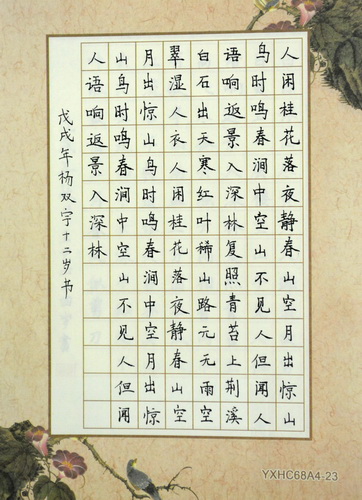 人闲桂花落夜静春山空月出惊山
鸟时鸣春涧中空山不见人但闻人
语响返景入深林复照青苔上荆溪
白石出天寒红叶稀山路元无雨空
翠湿人衣人闲桂花落夜静春山空
月出惊山鸟时鸣春涧中空月出惊
山鸟时鸣春涧中空山不见人但闻
人语响返景入深林
戊戌年杨双宇十二岁书
YXHC68A4-23